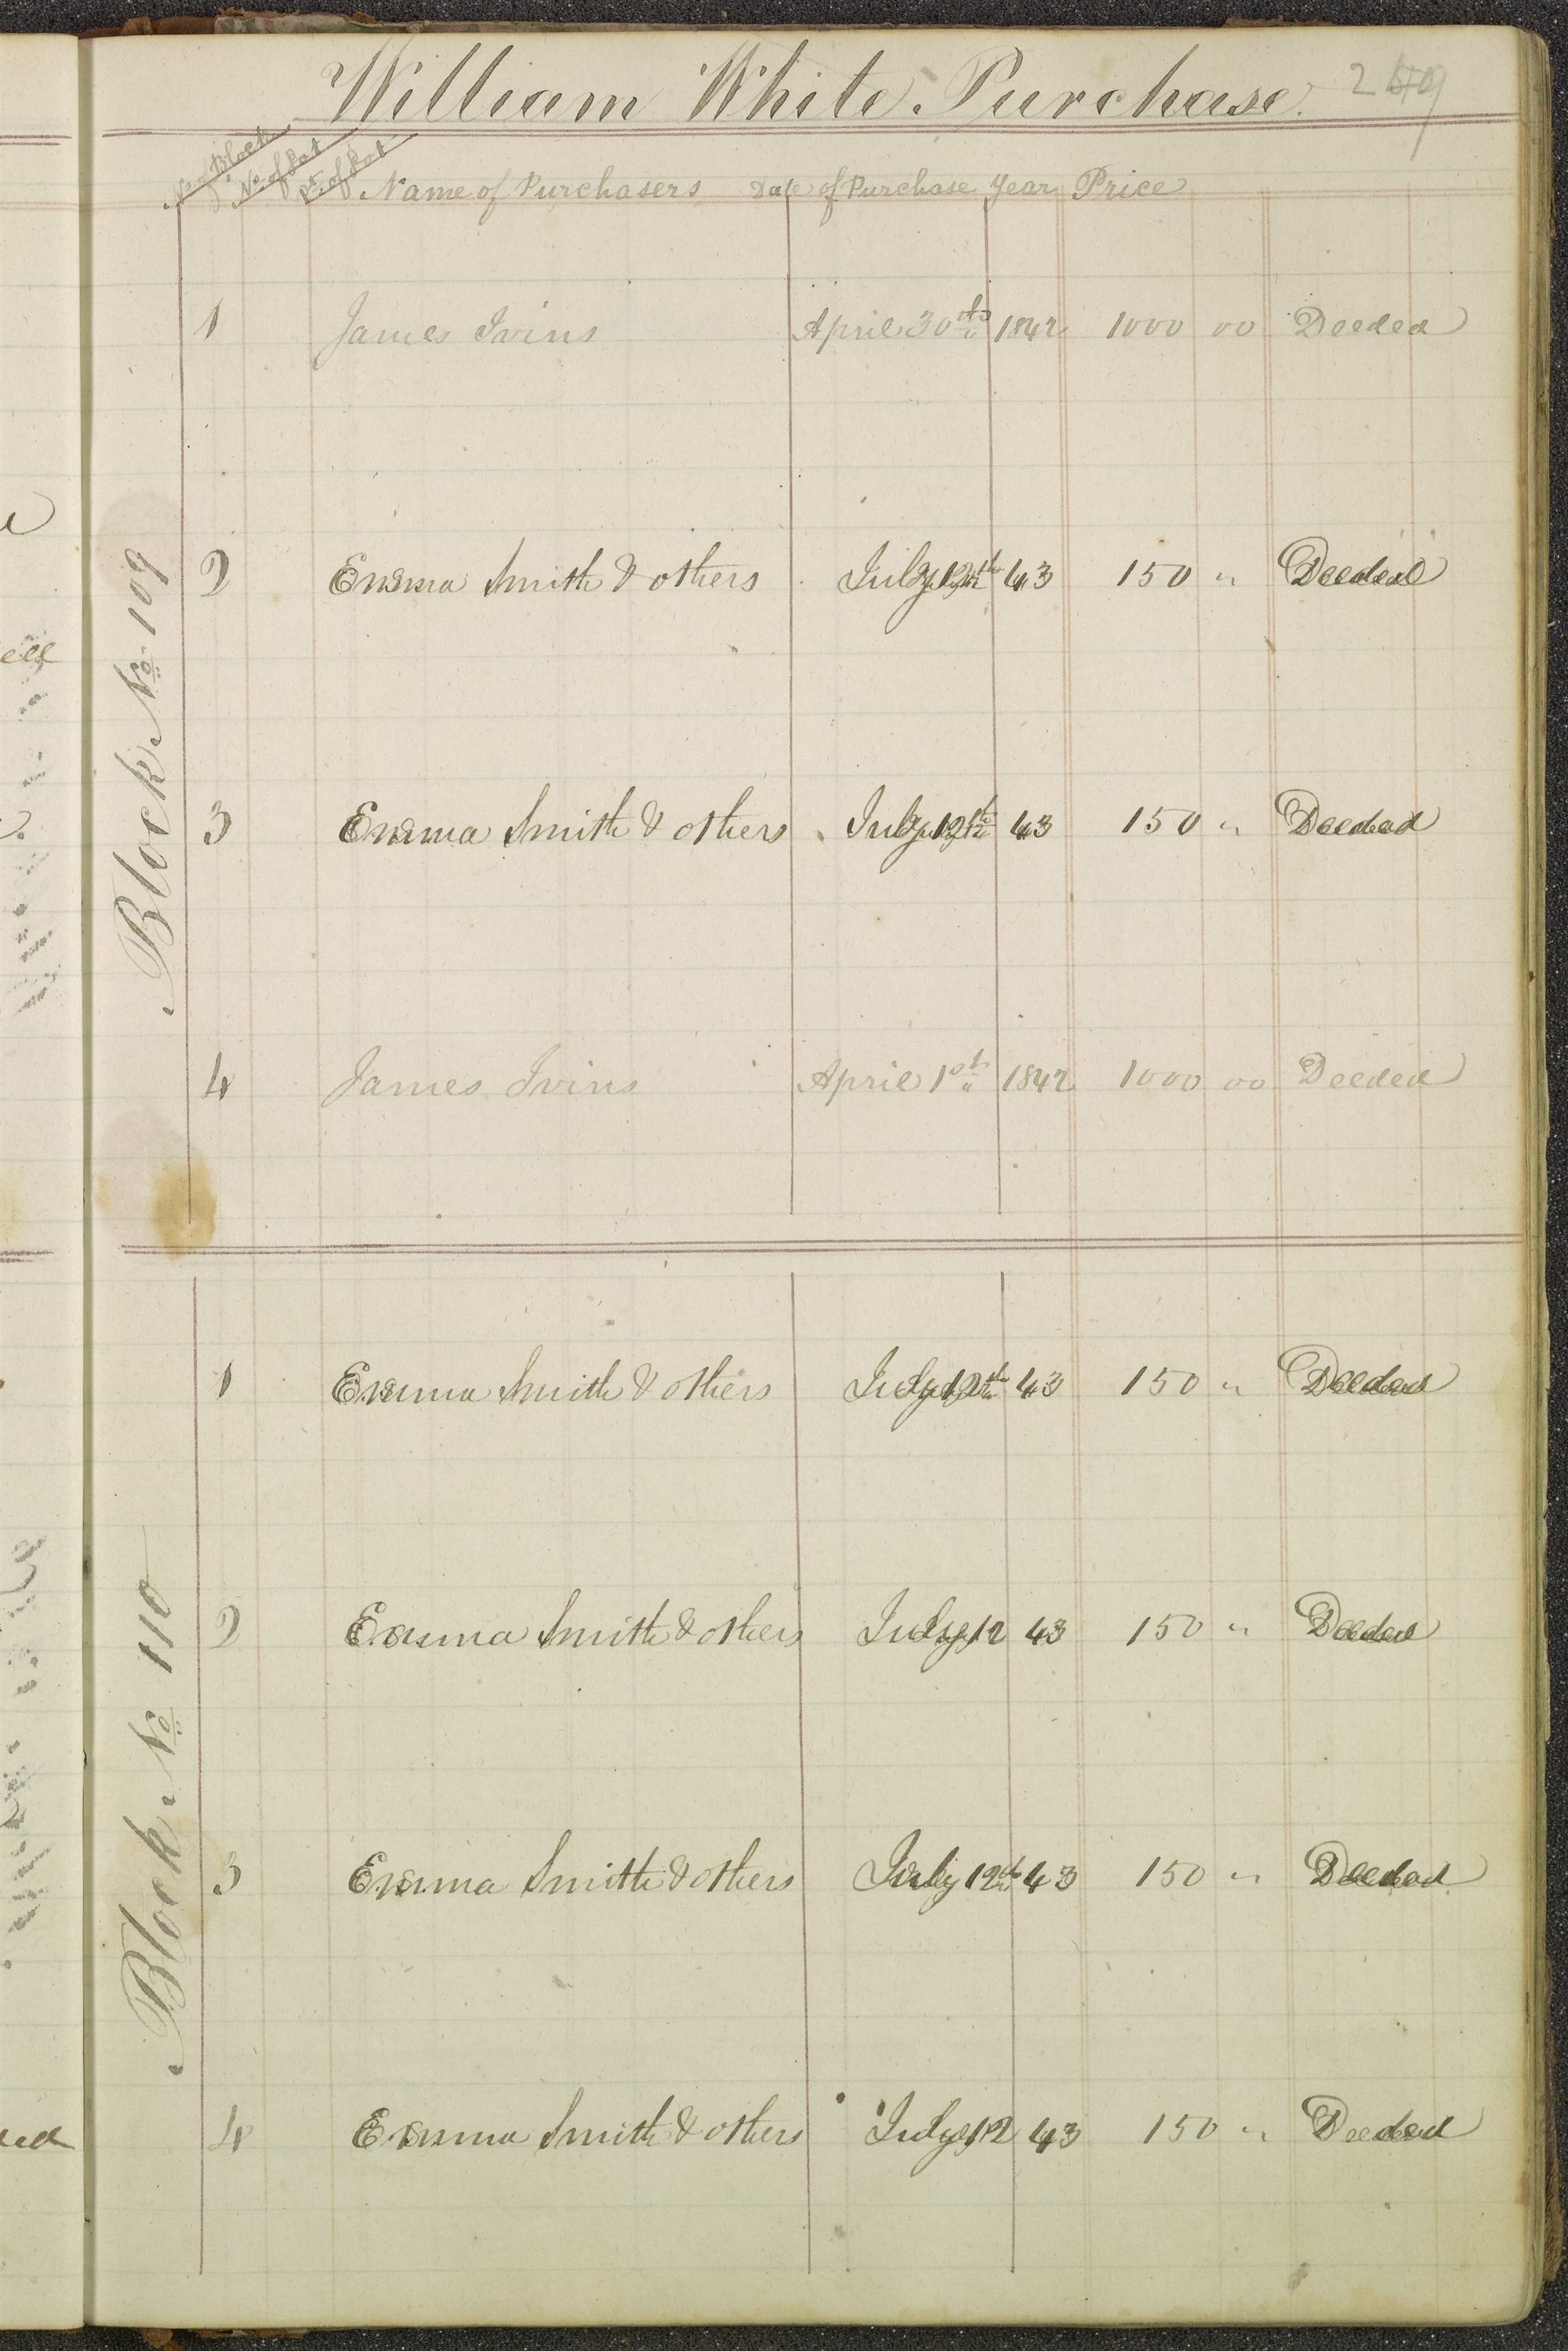 William White Purchase.
No of Block No. of Lot Pt. of Lot Name of Purchasers Date of Purchase Year Price
Block No 109
1 James Ivins April 30th 1842 1000 00 Deeded
2 Emma Smith & others July 12th 43 150 " Deeded
3 Emma Smith & others July 12th 43 150 " Deeded
4 James Ivins April 1842 1000 00 Deeded
Block No 110
1 Emma Smith & others July 12th 43 150 " Deeded
2 Emma Smith & others July 12 43 150 " Deeded
3 Emma Smith & others July 12th 43 150 " Deeded
4 Emma Smith & others July 12 43 150 " Deeded